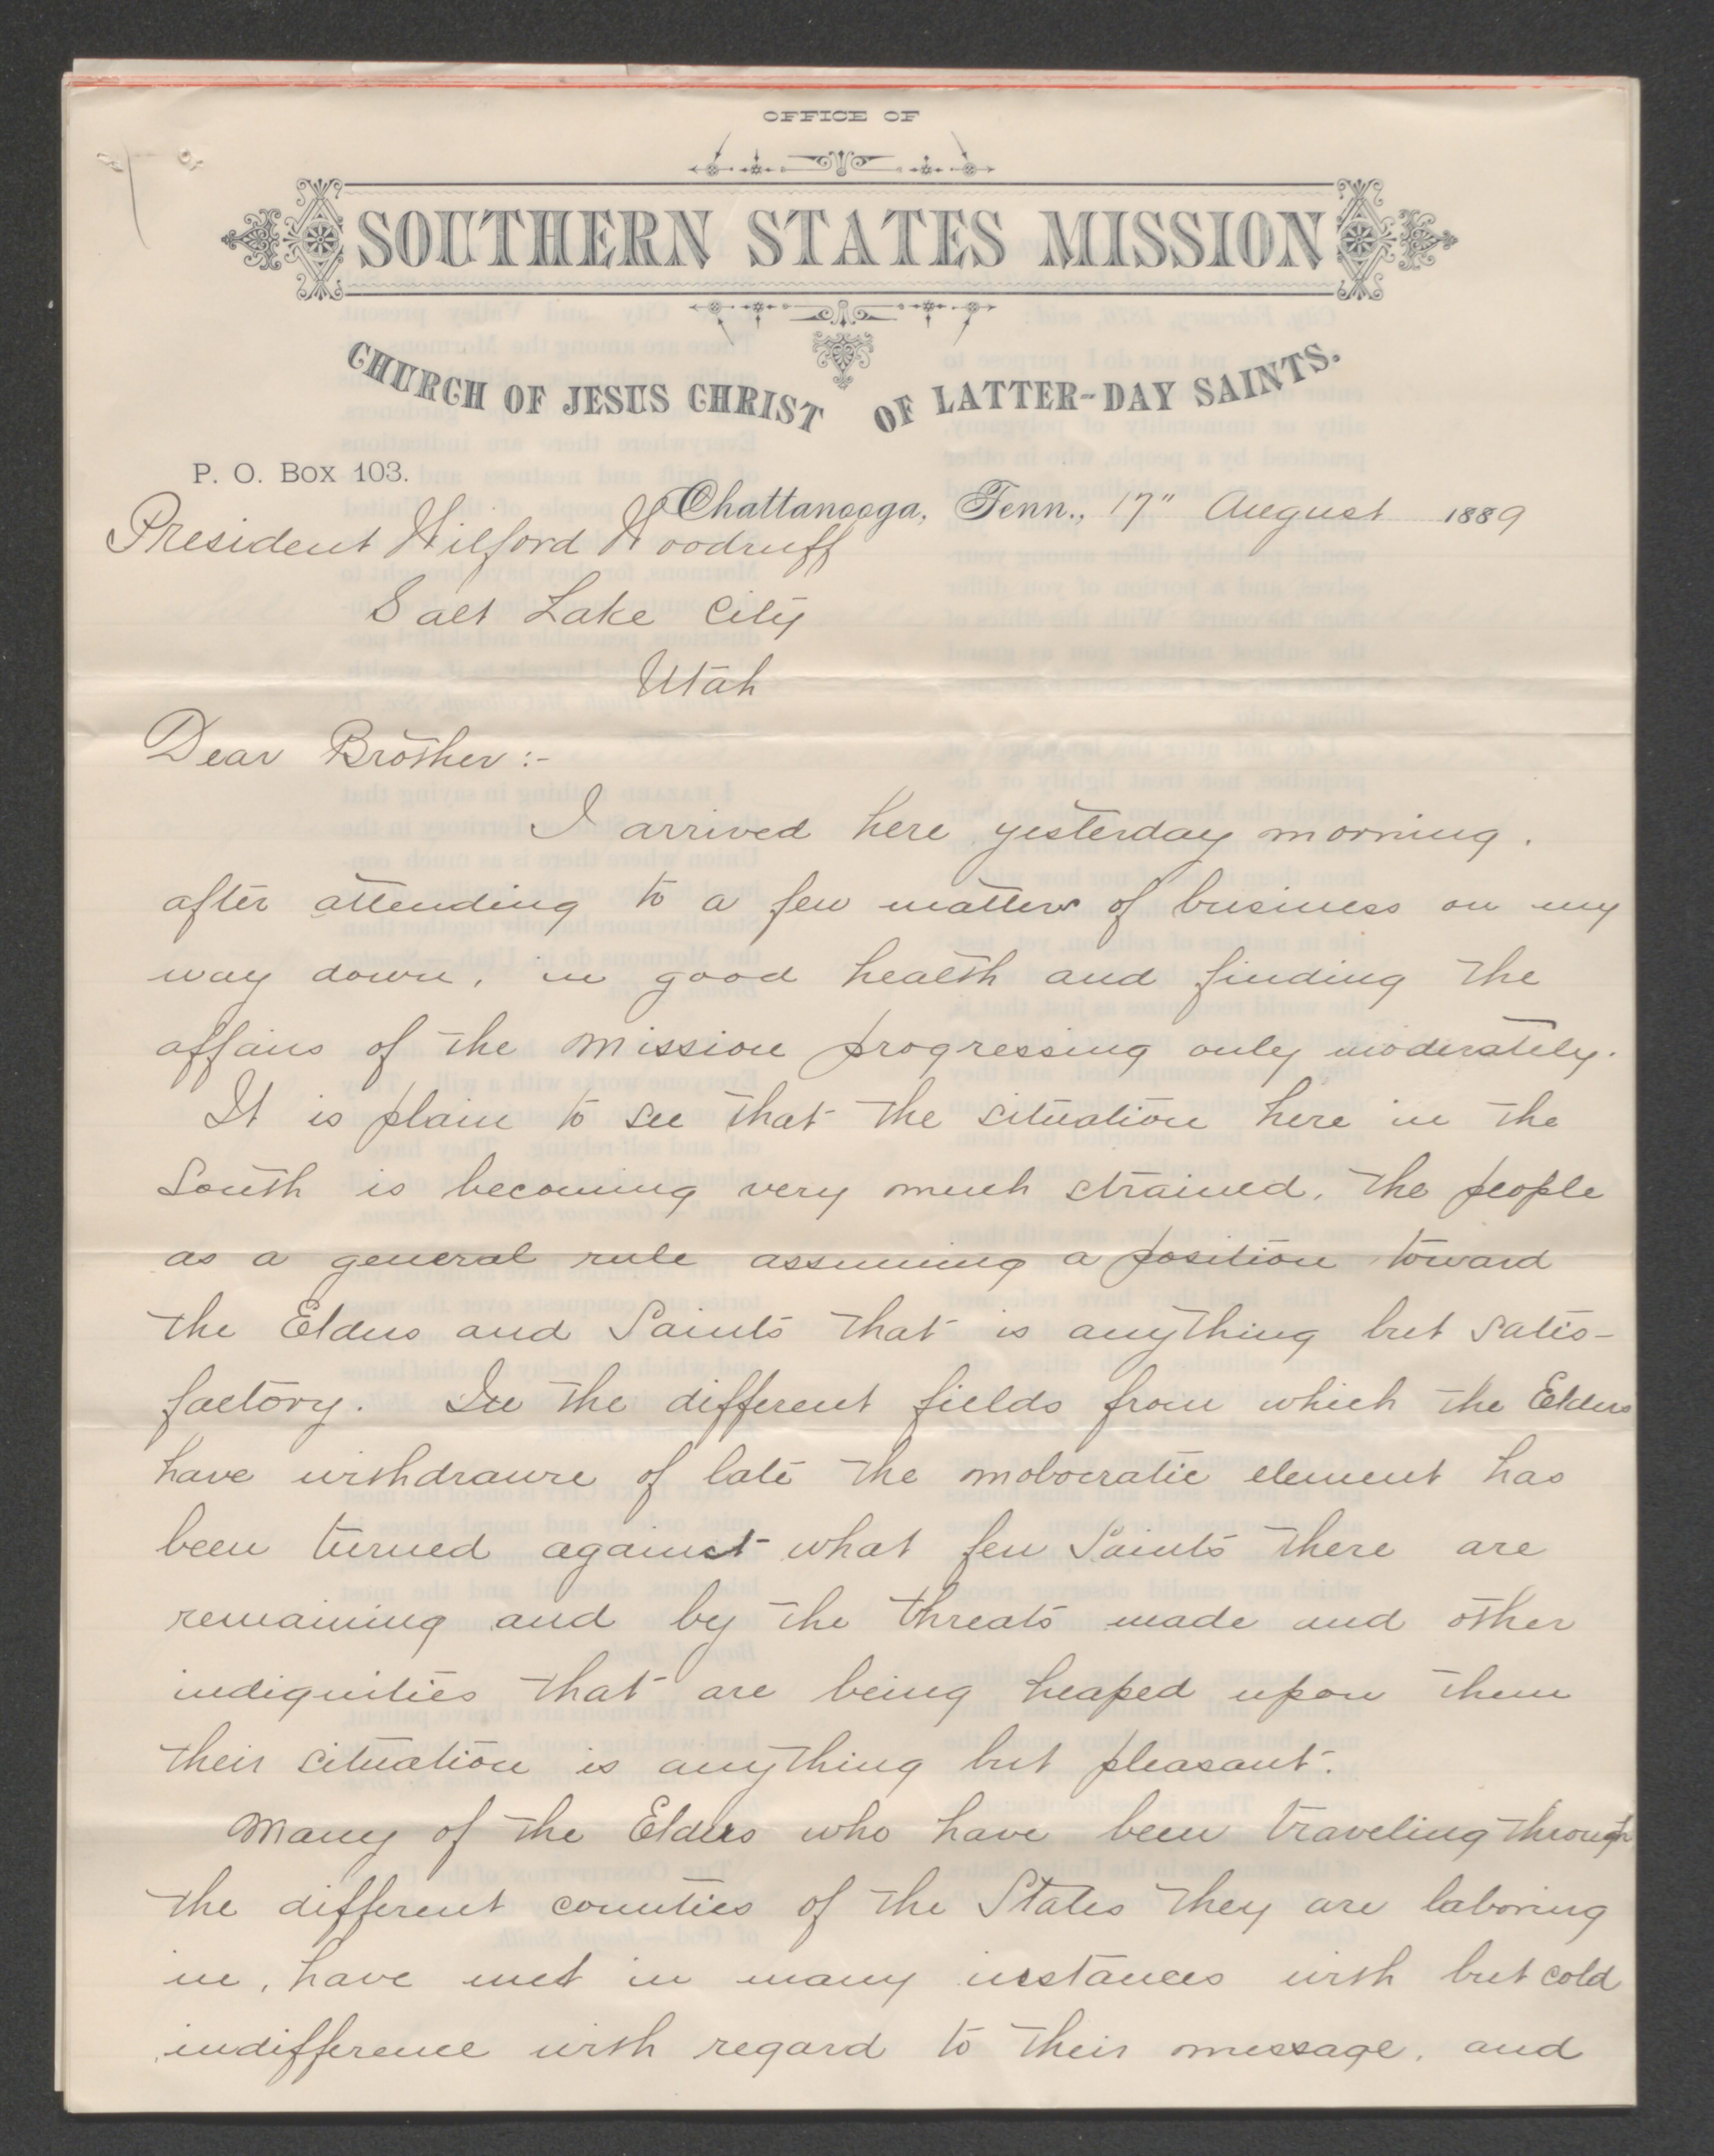 OFFICE OF
SOUTHERN STATES MISSION
CHURCH OF JESUS CHRIST OF LATTER-DAY SAINTS.
P. O. Box 103.
Chattanooga, Tenn., 17" August 1889
President Wilford Woodruff
Salt Lake City
Utah
Dear Brother:-
I arrived here yesterday morning.
after attending to a few matters of business on my
way down, in good health and finding the
affairs of the mission progressing only moderately.
It is plain to see that the situation here in the
South is becoming very much strained, the people
as a general rule assuming a position toward
the Elders and Saints that is anything but satis-
factory. In the different fields from which the Elders
have withdrawn of late the mobocratic element has
been turned against what few Saints there are
remaining and by the threats made and other
indignities that are being heaped upon them
their situation is anything but pleasant.
Many of the Elders who have been traveling through
the different counties of the States they are laboring
in, have met in many instances with but cold
indifference with regard to their message, and